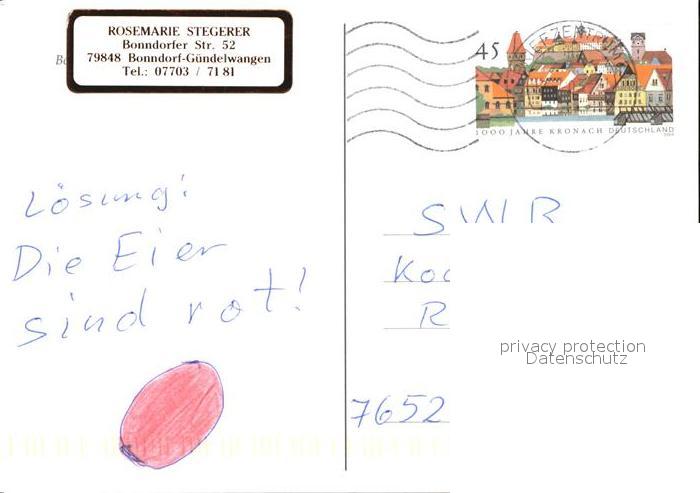 ROSEMARIE STEGERER
Bonndorfer Str. 52
79848 Bonndorf-Gündelwangen
Tel.: 07703 / 71 81
45
1000 JAHRE KRONACH DEUTSCHLAND
Lösung:
Die Eier
sind rot!
SWR
Koc
R
7652
privacy protection
Datenschutz